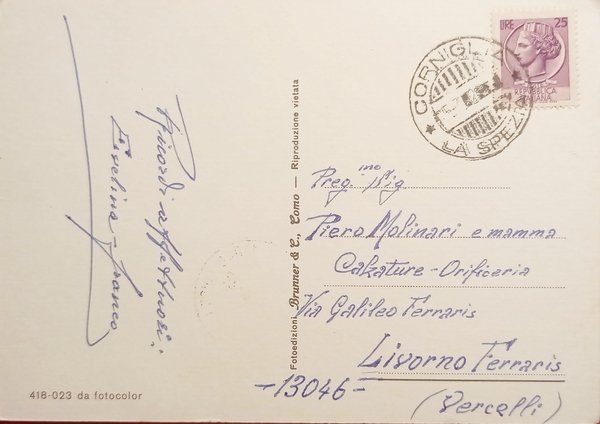 Ricordi affettuosi.
Evelina - Franco
418-023 da fotocolor
Fotoedizioni Brunner & C., Como — Riproduzione vietata
CORNIGLIA
* LA SPEZIA
LIRE 25
REPUBBLICA
ITALIANA
Preg.mo Sig
Piero Molinari e mamma
Calzature - Orificeria
Via Galileo Ferraris
Livorno Ferraris
-13046-
(Vercelli)